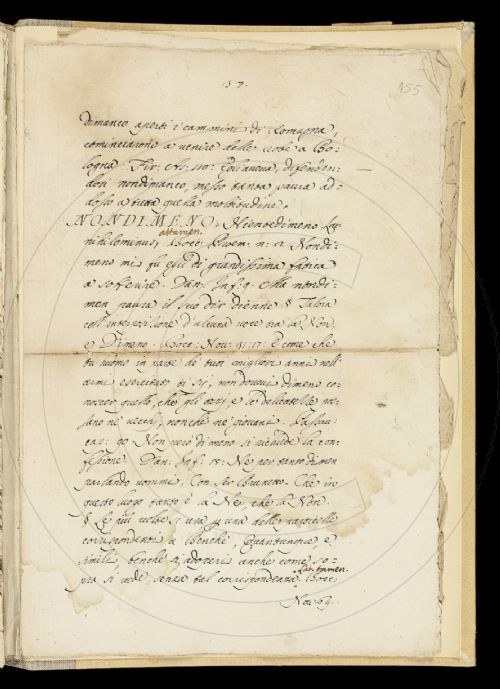 57.
155
dimanco aperti i cammini di Romagna,
cominciarono a venire delle cose a Bo-
logna. Fir: As: 110: difenden-
dosi nondimanco, messo tanta paura ad-
dosso a tutta quella moltitudine.
NONDIMENO. Nientedimeno Lat:
attamen.
nihilominus, Bocc: Proem. n: 2. Nondi-
meno mi fu egli di grandissima fatica
a sofferire. Dan. Inf: 9. Ma nondi-
men paura il suo dir dienne § Talora
coll'interposizione d'alcuna voce tra la Non,
e Dimeno. Bocc: Nov: E come che
tu uomo in parte de tuoi migliori anni nell'
armi esercitato ti sij, non dovevi dimeno co-
noscer quello, che gli ozij, e le delicatezze pos-
sano ne vecchi, nonchè ne giovani. Passav:
car: 90. Non però di meno si richiede la con-
fessione. Dan: Inf: 15: Ne per tanto di men
parlando vommi, Con Ser Brunetto. Che in
questo luogo tanto è la Ne, che la Non.
§ Le più volte si usa una delle particelle
corrispondenti a Benchè, Quantunque e
simili, benchè si adoperi anche come so-
Lat: tamen.
pra si vede senza tal corrispondenza. Bocc:
Nov: 69.